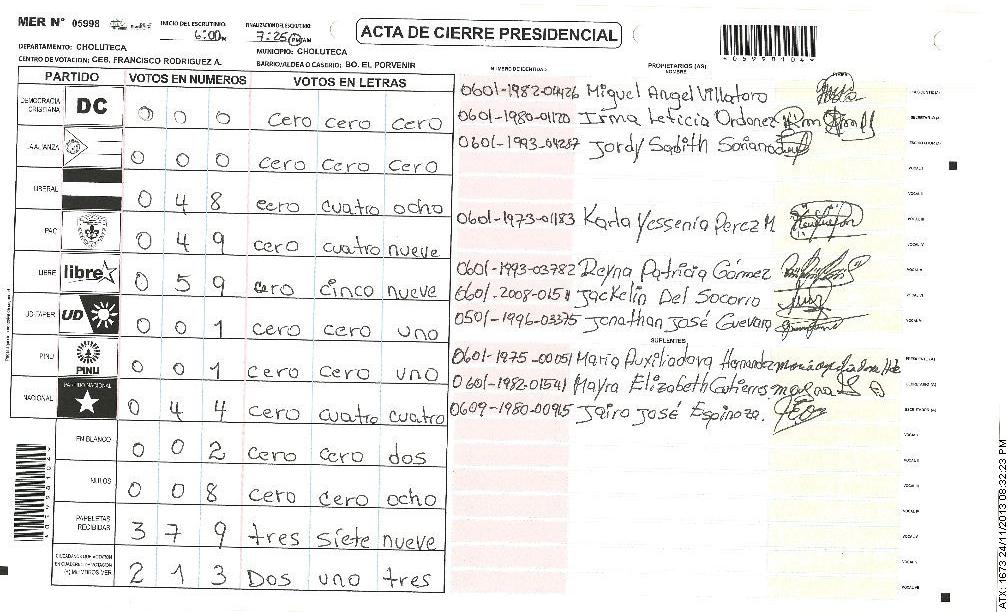 MER N° 05998 INICIO DEL ESCRUTINIO: 6:00 FINALIZACION DEL ESCRUTINIO: 7:25 PM AM
ACTA DE CIERRE PRESIDENCIAL
DEPARTAMENTO: CHOLUTECA MUNICIPIO: CHOLUTECA
CENTRO DE VOTACION: CEB. FRANCISCO RODRIGUEZ A. BARRIO/ALDEA O CASERIO: BO. EL PORVENIR
PARTIDO VOTOS EN NUMEROS VOTOS EN LETRAS
DEMOCRACIA CRISTIANA DC 0 0 0 cero cero cero
LA ALIANZA 0 0 0 cero cero cero
LIBERAL 0 4 8 cero cuatro ocho
PAC 0 4 9 cero cuatro nueve
LIBRE libre 0 5 9 cero cinco nueve
UD-FAPER UD 0 0 1 cero cero uno
PINU PINU 0 0 1 cero cero uno
NACIONAL PARTIDO NACIONAL 0 4 4 cero cuatro cuatro
EN BLANCO 0 0 2 cero cero dos
NULOS 0 0 8 cero cero ocho
PAPELETAS RECIBIDAS 3 7 9 tres siete nueve
CIUDADANOS QUE VOTARON EN CUADERNO DE VOTACION (+) MIEMBROS MER 2 1 3 Dos uno tres
NUMERO DE IDENTIDAD PROPIETARIOS (AS) NOMBRE FIRMA
0601-1982-04426 Miguel Angel Villatoro
0601-1980-01120 Irma Leticia Ordonez
0601-1993-04287 Jordy Sadith Soriano
0601-1973-01183 Karla Yessenia Perez M
0601-1993-03782 Reyna Patricia Gómez
Jackelin Del Socorro
0501-1996-03375 Jonathan José Guevara
SUPLENTES
0601-1975-00051 Maria Auxiliadora Hernandez
0601-1982-01541 Mayra Elizabeth Gutierres
0609-1980-00915 Jairo José Espinoza.
ATX: 1673 24/11/2013 08:32:23 PM